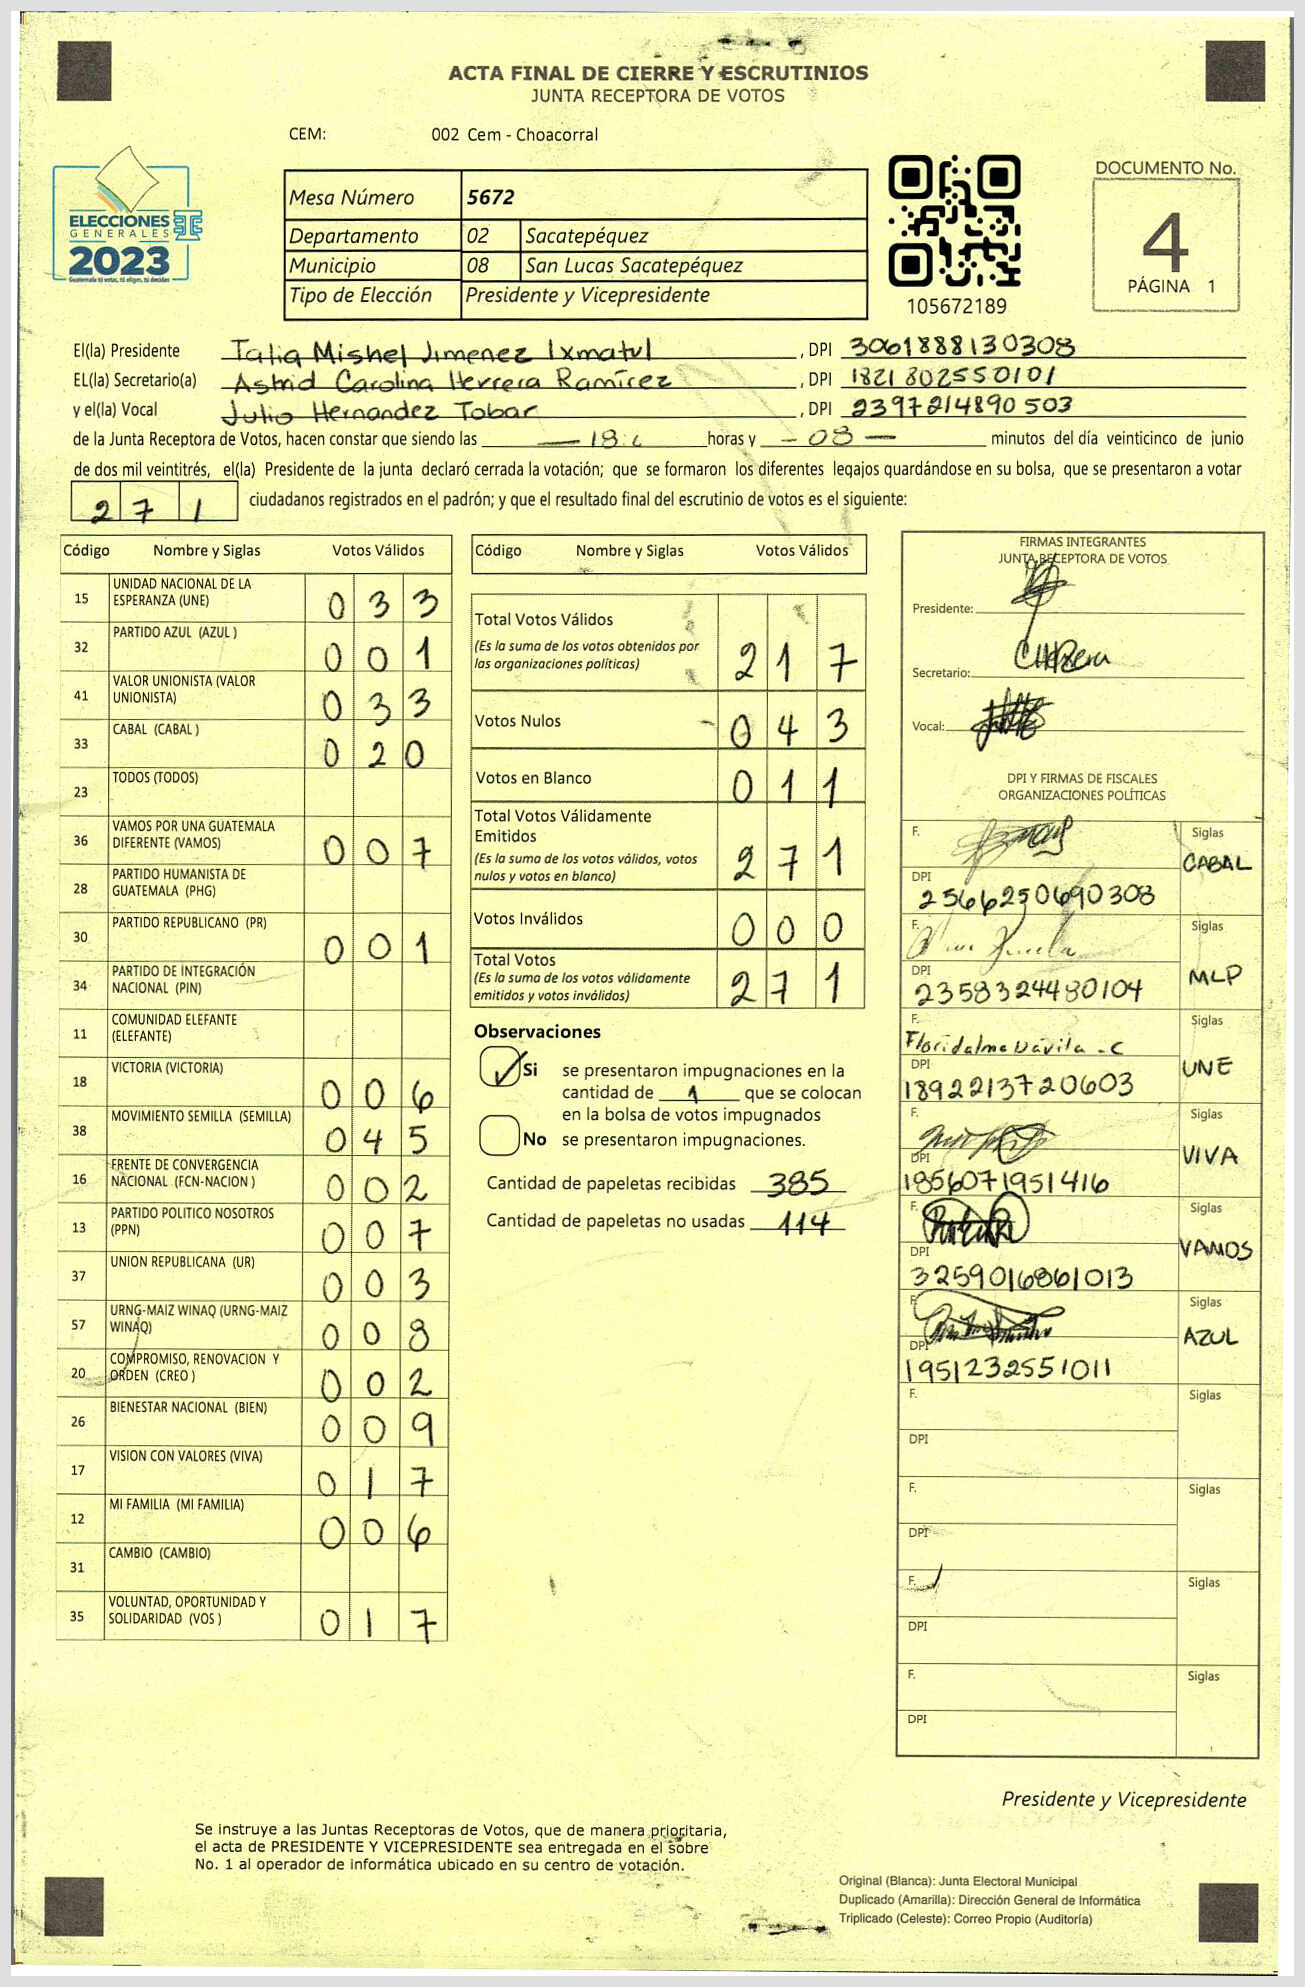 ACTA FINAL DE CIERRE Y ESCRUTINIOS
JUNTA RECEPTORA DE VOTOS
CEM: 002 Cem - Choacorral
ELECCIONES
GENERALES
2023
Guatemala tú votas, tú eliges, tú decides
Mesa Número 5672
Departamento 02 Sacatepéquez
Municipio 08 San Lucas Sacatepéquez
Tipo de Elección Presidente y Vicepresidente
105672189
DOCUMENTO No.
4
PÁGINA 1
El(la) Presidente Talia Mishel Jimenez Ixmatul, DPI 3061888130308
EL(la) Secretario(a) Astrid Carolina Herrera Ramírez, DPI 1821802550101
y el(la) Vocal Julio Hernandez Tobar, DPI 2397214890503
de la Junta Receptora de Votos, hacen constar que siendo las 18 horas y - 08 - minutos del día veinticinco de junio
de dos mil veintitrés, el(la) Presidente de la junta declaró cerrada la votación; que se formaron los diferentes legajos quardándose en su bolsa, que se presentaron a votar
271 ciudadanos registrados en el padrón; y que el resultado final del escrutinio de votos es el siguiente:
Código Nombre y Siglas Votos Válidos
15 UNIDAD NACIONAL DE LA ESPERANZA (UNE) 033
32 PARTIDO AZUL (AZUL ) 001
41 VALOR UNIONISTA (VALOR UNIONISTA) 033
33 CABAL (CABAL ) 020
23 TODOS (TODOS)
36 VAMOS POR UNA GUATEMALA DIFERENTE (VAMOS) 007
28 PARTIDO HUMANISTA DE GUATEMALA (PHG)
30 PARTIDO REPUBLICANO (PR) 001
34 PARTIDO DE INTEGRACIÓN NACIONAL (PIN)
11 COMUNIDAD ELEFANTE (ELEFANTE)
18 VICTORIA (VICTORIA) 006
38 MOVIMIENTO SEMILLA (SEMILLA) 045
16 FRENTE DE CONVERGENCIA NACIONAL (FCN-NACION ) 002
13 PARTIDO POLITICO NOSOTROS (PPN) 007
37 UNION REPUBLICANA (UR) 003
57 URNG-MAIZ WINAQ (URNG-MAIZ WINAQ) 008
20 COMPROMISO, RENOVACION Y ORDEN (CREO ) 002
26 BIENESTAR NACIONAL (BIEN) 009
17 VISION CON VALORES (VIVA) 017
12 MI FAMILIA (MI FAMILIA) 006
31 CAMBIO (CAMBIO)
35 VOLUNTAD, OPORTUNIDAD Y SOLIDARIDAD (VOS ) 017
Código Nombre y Siglas Votos Válidos
Total Votos Válidos 217
(Es la suma de los votos obtenidos por
las organizaciones políticas)
Votos Nulos 043
Votos en Blanco 011
Total Votos Válidamente
Emitidos 271
(Es la suma de los votos válidos, votos
nulos y votos en blanco)
Votos Inválidos 000
Total Votos 271
(Es la suma de los votos válidamente
emitidos y votos inválidos)
Observaciones
Si se presentaron impugnaciones en la
cantidad de 1 que se colocan
en la bolsa de votos impugnados
No se presentaron impugnaciones.
Cantidad de papeletas recibidas 385
Cantidad de papeletas no usadas 114
FIRMAS INTEGRANTES
JUNTA RECEPTORA DE VOTOS
Presidente:
Secretario:
Vocal:
DPI Y FIRMAS DE FISCALES
ORGANIZACIONES POLÍTICAS
F. Siglas
CABAL
DPI
2566250690308
F. Siglas
MLP
DPI
2358324480104
F. Siglas
Floridalma Dávila - C
UNE
DPI
1892213720603
F. Siglas
VIVA
DPI
1856071951416
F. Siglas
VAMOS
DPI
3259016861013
F. Siglas
AZUL
DPI
1951232551011
F. Siglas
DPI
F. Siglas
DPI
F. Siglas
DPI
F. Siglas
DPI
Presidente y Vicepresidente
Se instruye a las Juntas Receptoras de Votos, que de manera prioritaria,
el acta de PRESIDENTE Y VICEPRESIDENTE sea entregada en el sobre
No. 1 al operador de informática ubicado en su centro de votación.
Original (Blanca): Junta Electoral Municipal
Duplicado (Amarilla): Dirección General de Informática
Triplicado (Celeste): Correo Propio (Auditoría)